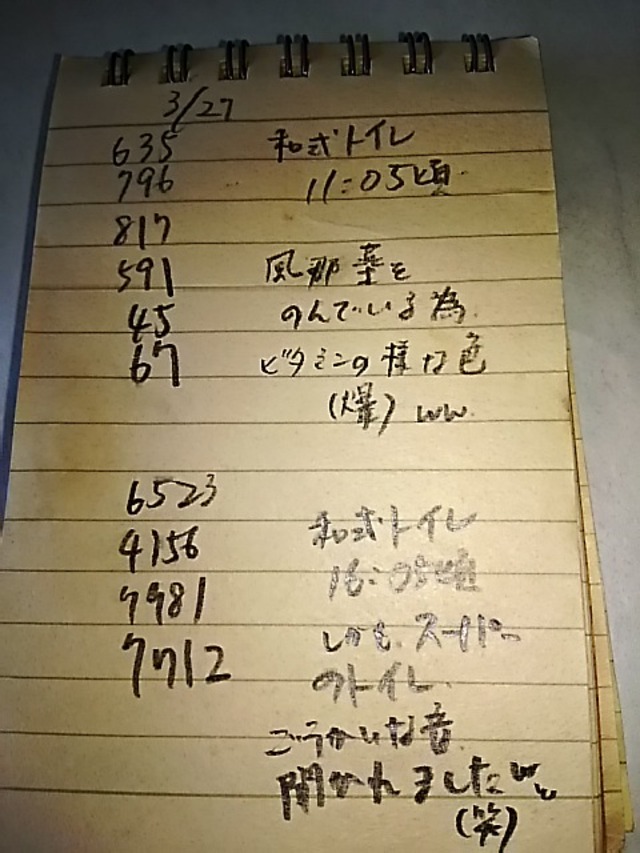 3/27
635 和式トイレ
796 11:05頃
817
591 風邪薬を
45 のんでいる為
67 ビタミンの様な色
(爆)ww
6523
4156 和式トイレ
7981 16:05頃
7712 しかも、スーパー
のトイレ
ごうかいな音
聞かれましたww
(笑)